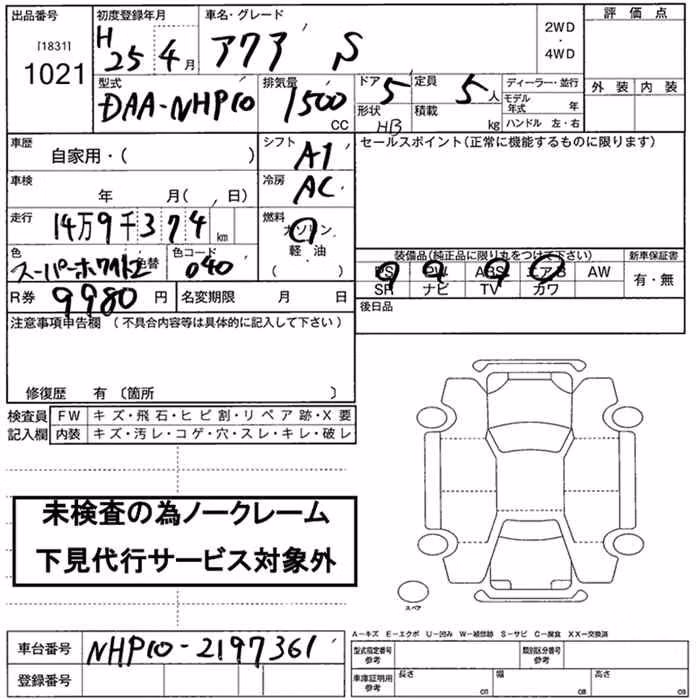 出品番号
[1831]
1021
初度登録年月
H 25 4月
車名・グレード
アクア S
2WD
・
4WD
評価点
外装 内装
型式
DAA-NHP10
排気量
1500
CC
ドア 5
定員 5人
形状 HB
積載 kg
ディーラー・並行
モデル年式 年
ハンドル 左・右
車歴
自家用・( )
シフト
AT
セールスポイント(正常に機能するものに限ります)
車検
年 月( , 日)
冷房
AC
走行
14万9千374km
燃料
ガソリン
軽・油
( )
色
スーパーホワイト2
色替
色コード
040
装備品(純正品に限り丸をつけて下さい)
新車保証書
PS PW ABS エアB AW
SR ナビ TV カワ
有・無
R券 9980円
名変期限 月 日
後日品
注意事項申告欄 (不具合内容等は具体的に記入して下さい)
修復歴 有 〔箇所 〕
検査員
記入欄
FW キズ・飛石・ヒビ割・リペア跡・X要
内装 キズ・汚レ・コゲ・穴・スレ・キレ・破レ
未検査の為ノークレーム
下見代行サービス対象外
スペア
車台番号 NHP10-2197361
登録番号
A−キズ E−エクボ U−凹み W−補修跡 S−サビ C−腐食 XX−交換済
型式指定番号
参考
類別区分番号
参考
車庫証明用
参考
長さ cm
幅 cm
高さ cm